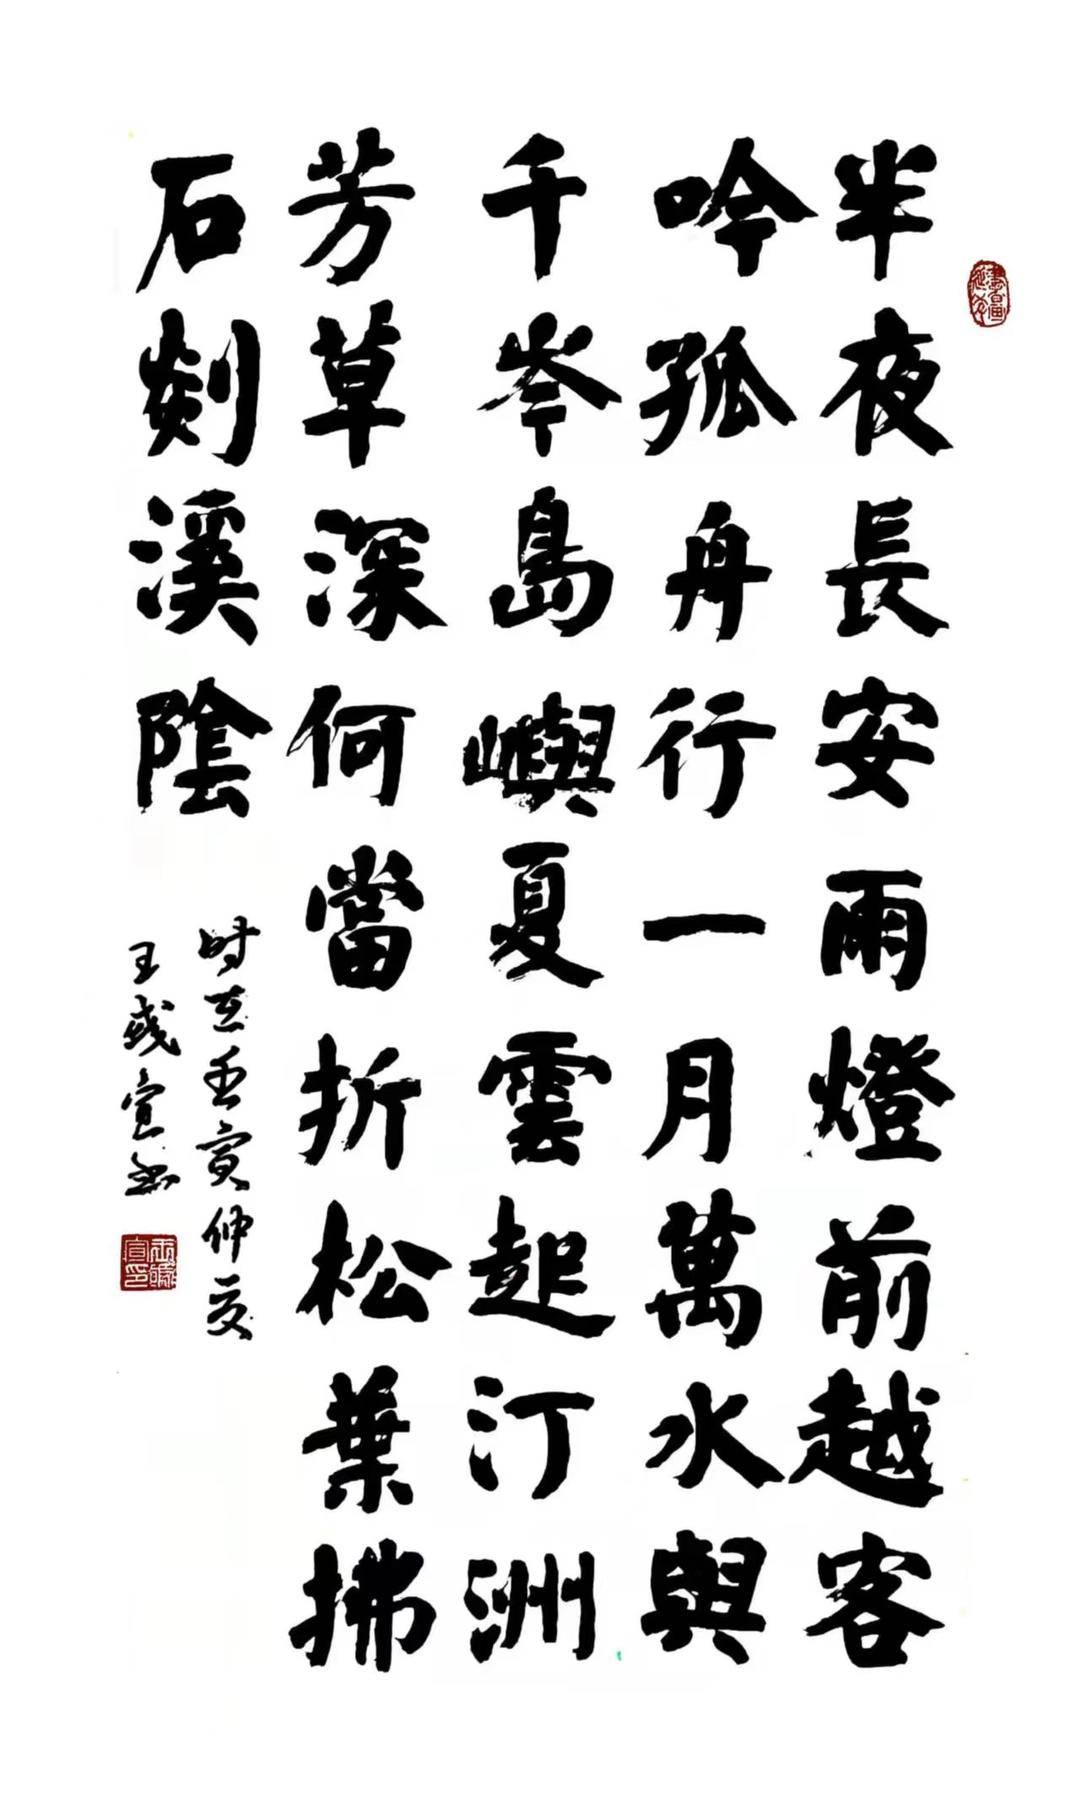 半夜長安雨燈前越客
吟孤舟行一月萬水與
千岑島嶼夏雲起汀洲
芳草深何當折松葉拂
石剡溪陰
时在壬寅仲夏
王彧宣书